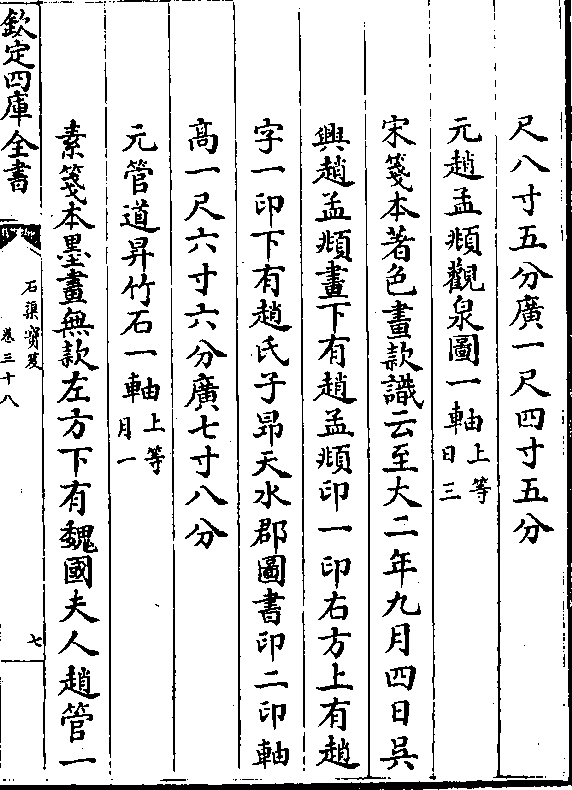 尺八寸五分廣一尺四寸五分
元趙孟頫觀泉圖一軸上等日三
宋箋本著色畫款識云至大二年九月四日吳
興趙孟頫畫下有趙孟頫印一印右方上有趙
字一印下有趙氏子昂天水郡圖書印二印軸
高一尺六寸六分廣七寸八分
元管道昇竹石一軸上等月一
素箋本墨畫無款左方下有魏國夫人趙管一
欽定四庫全書
石渠寶笈
卷三十八
七